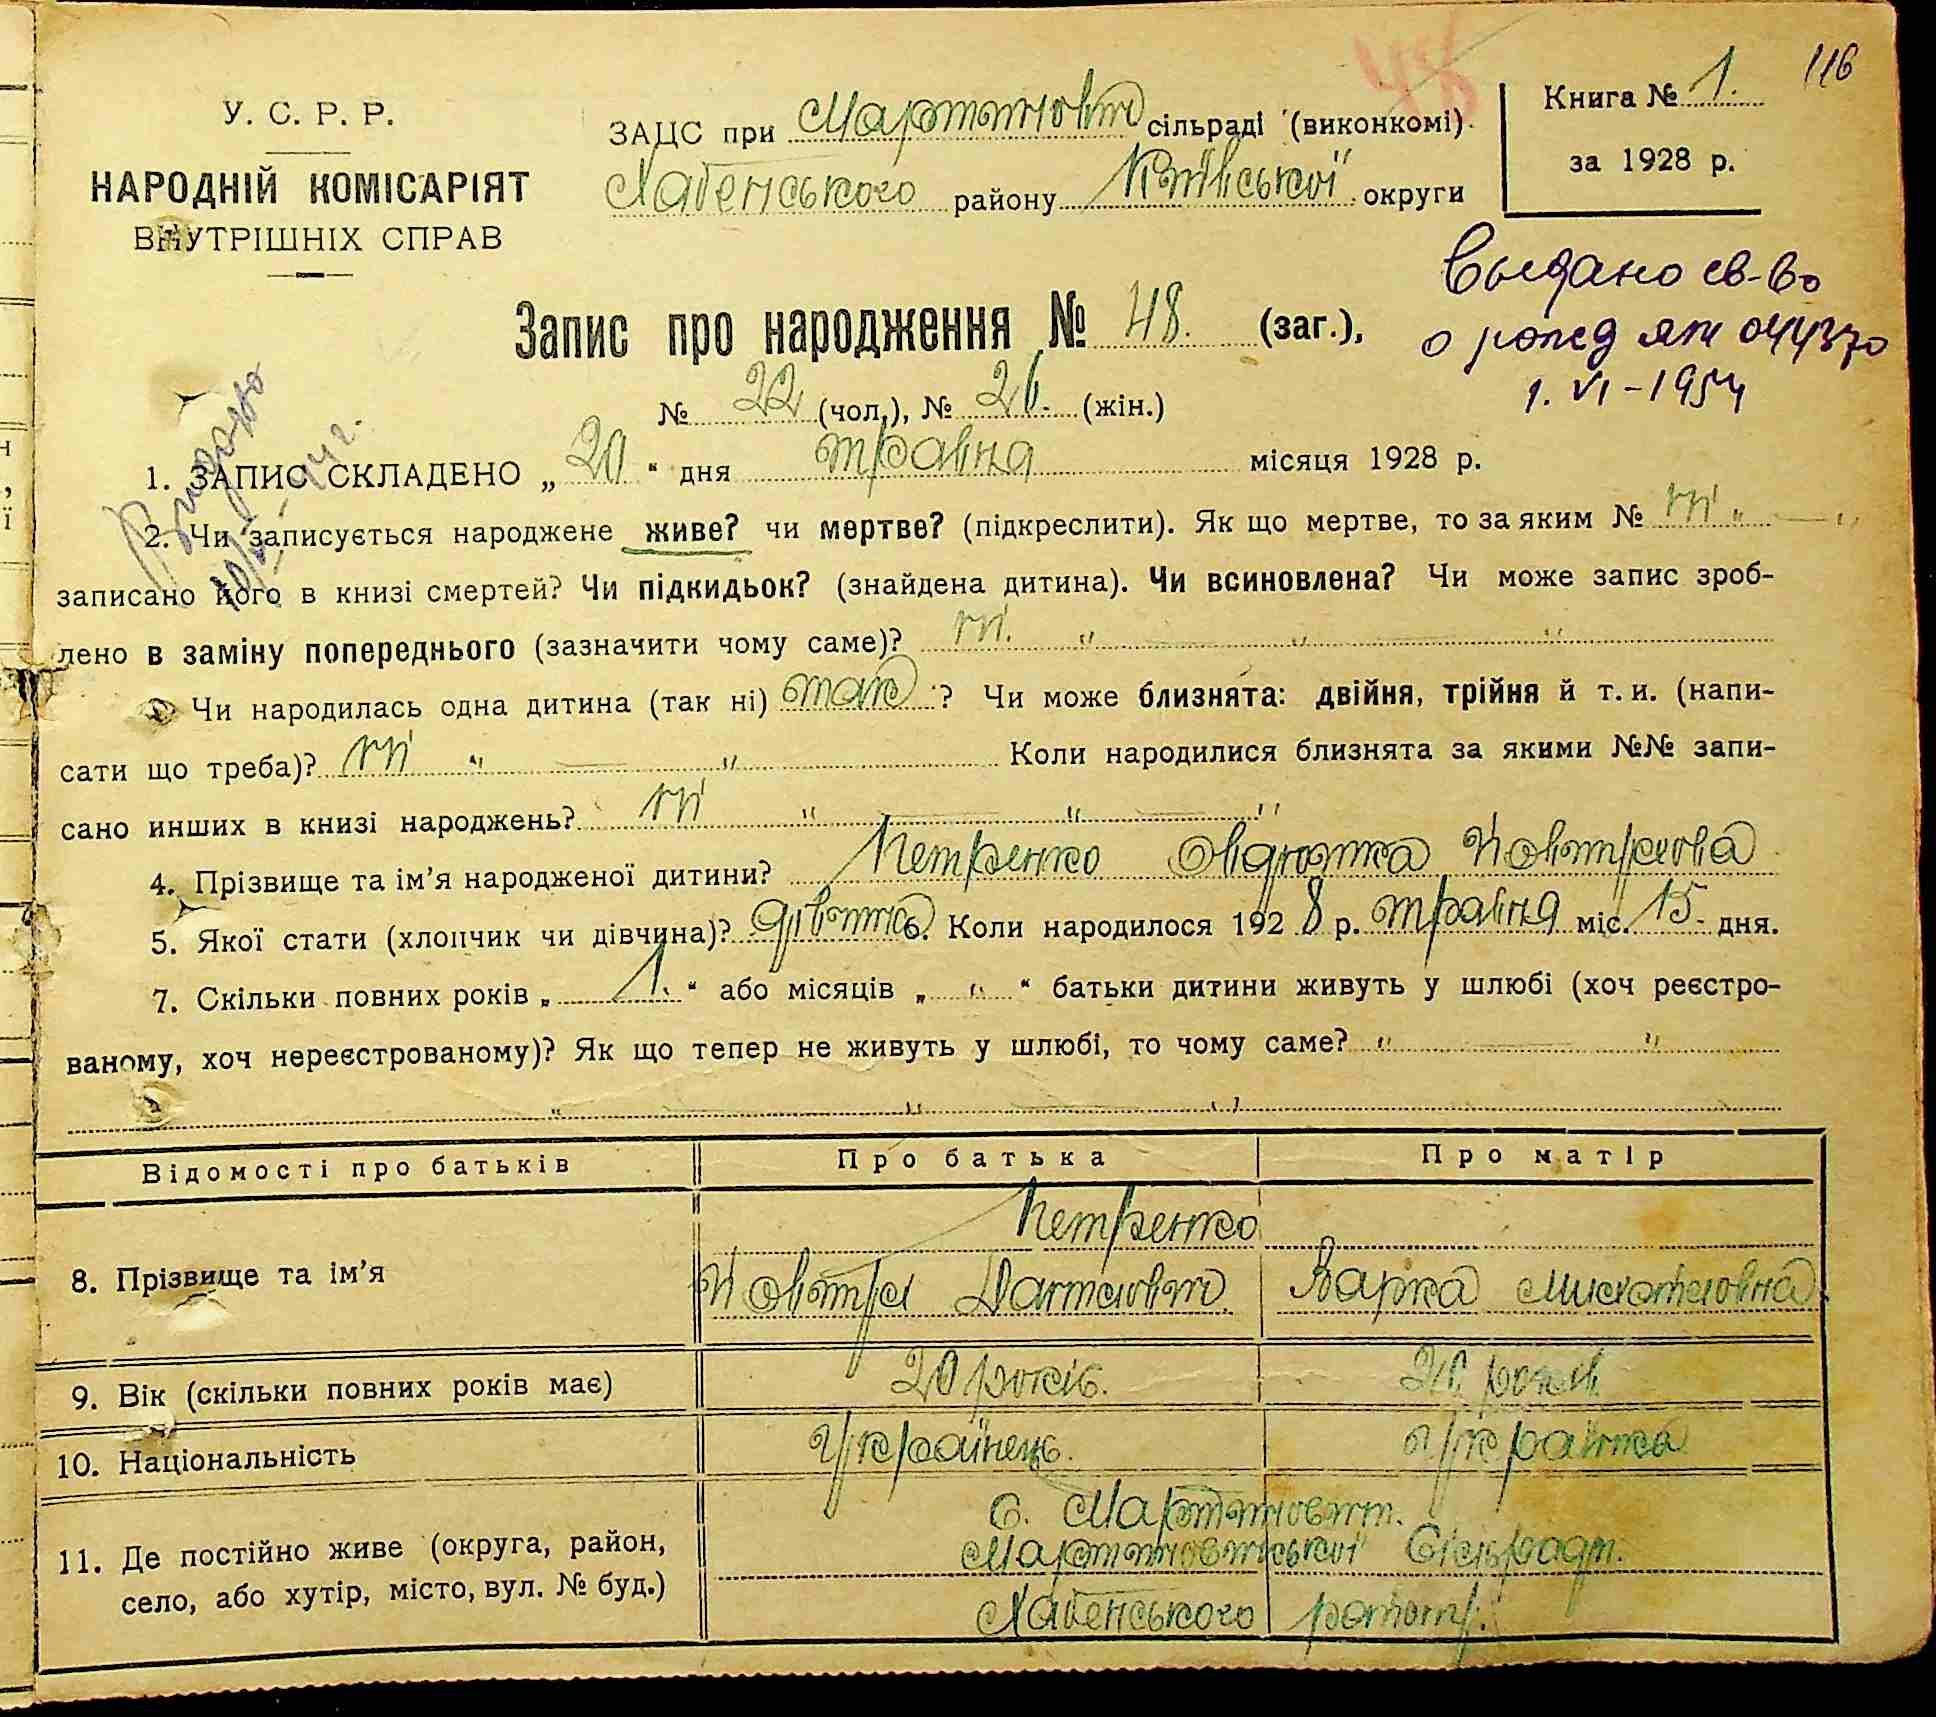 116
48
У. С. Р. Р.
НАРОДНІЙ КОМІСАРІЯТ
ВНУТРІШНІХ СПРАВ
ЗАЦС при Мартинович сільраді (виконкомі)
Хабенського району Київської округи
Книга № 1.
за 1928 р.
Выдано св-во
о рожд 044370
1. VI - 1954
Запис про народження № 48. (заг.),
№ 22 (чол.), № 26. (жін.)
Видано
1. ЗАПИС СКЛАДЕНО „ 20 “ дня травня місяця 1928 р.
2. Чи записується народжене живе? чи мертве? (підкреслити). Як що мертве, то за яким № ні „ — „
записано його в книзі смертей? Чи підкидьок? (знайдена дитина). Чи всиновлена? Чи може запис зроб-
лено в заміну попереднього (зазначити чому саме)? ні. „ — „ — „
Чи народилась одна дитина (так ні) так ? Чи може близнята: двійня, трійня й т. и. (напи-
сати що треба)? ні „ — „ Коли народилися близнята за якими №№ запи-
сано инших в книзі народжень? ні „ — „ — „
4. Прізвище та ім’я народженої дитини? Петренко
5. Якої стати (хлопчик чи дівчина)? дівчина 6. Коли народилося 1928 р. травня міс. 15. дня.
7. Скільки повних років „ 1. “ або місяців „ „ “ батьки дитини живуть у шлюбі (хоч реєстро-
ваному, хоч нереєстрованому)? Як що тепер не живуть у шлюбі, то чому саме? „ — „
„ — „ — „
Відомості про батьків Про батька Про матір
8. Прізвище та ім’я
Петренко
Варка
9. Вік (скільки повних років має) 20 років. 20 років
10. Національність Українець. Українка
11. Де постійно живе (округа, район,
село, або хутір, місто, вул. № буд.)
С. Мартинович.
Мартиновичської Сільради.
Хабенського району.